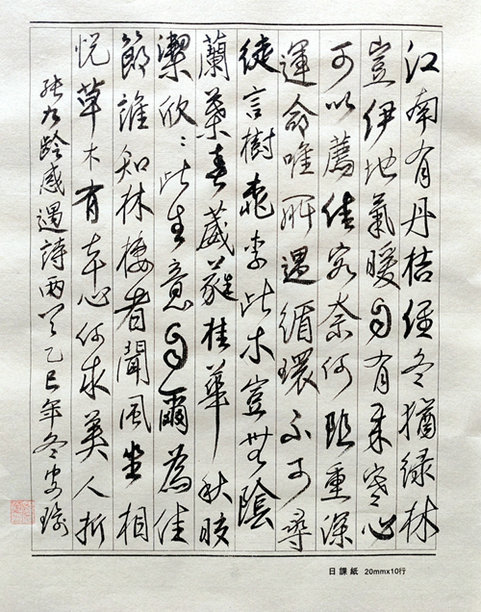 江南有丹桔經冬猶綠林
豈伊地氣暖自有歲寒心
可以薦佳客奈何阻重深
運命唯所遇循環不可尋
徒言樹桃李此木豈無陰
蘭葉春葳蕤桂華秋皎
潔欣〻此生意自爾為佳
節誰知林棲者聞風坐相
悅草木有本心何求美人折
張九齡感遇詩兩首乙巳年冬
日課紙 20mmx10行